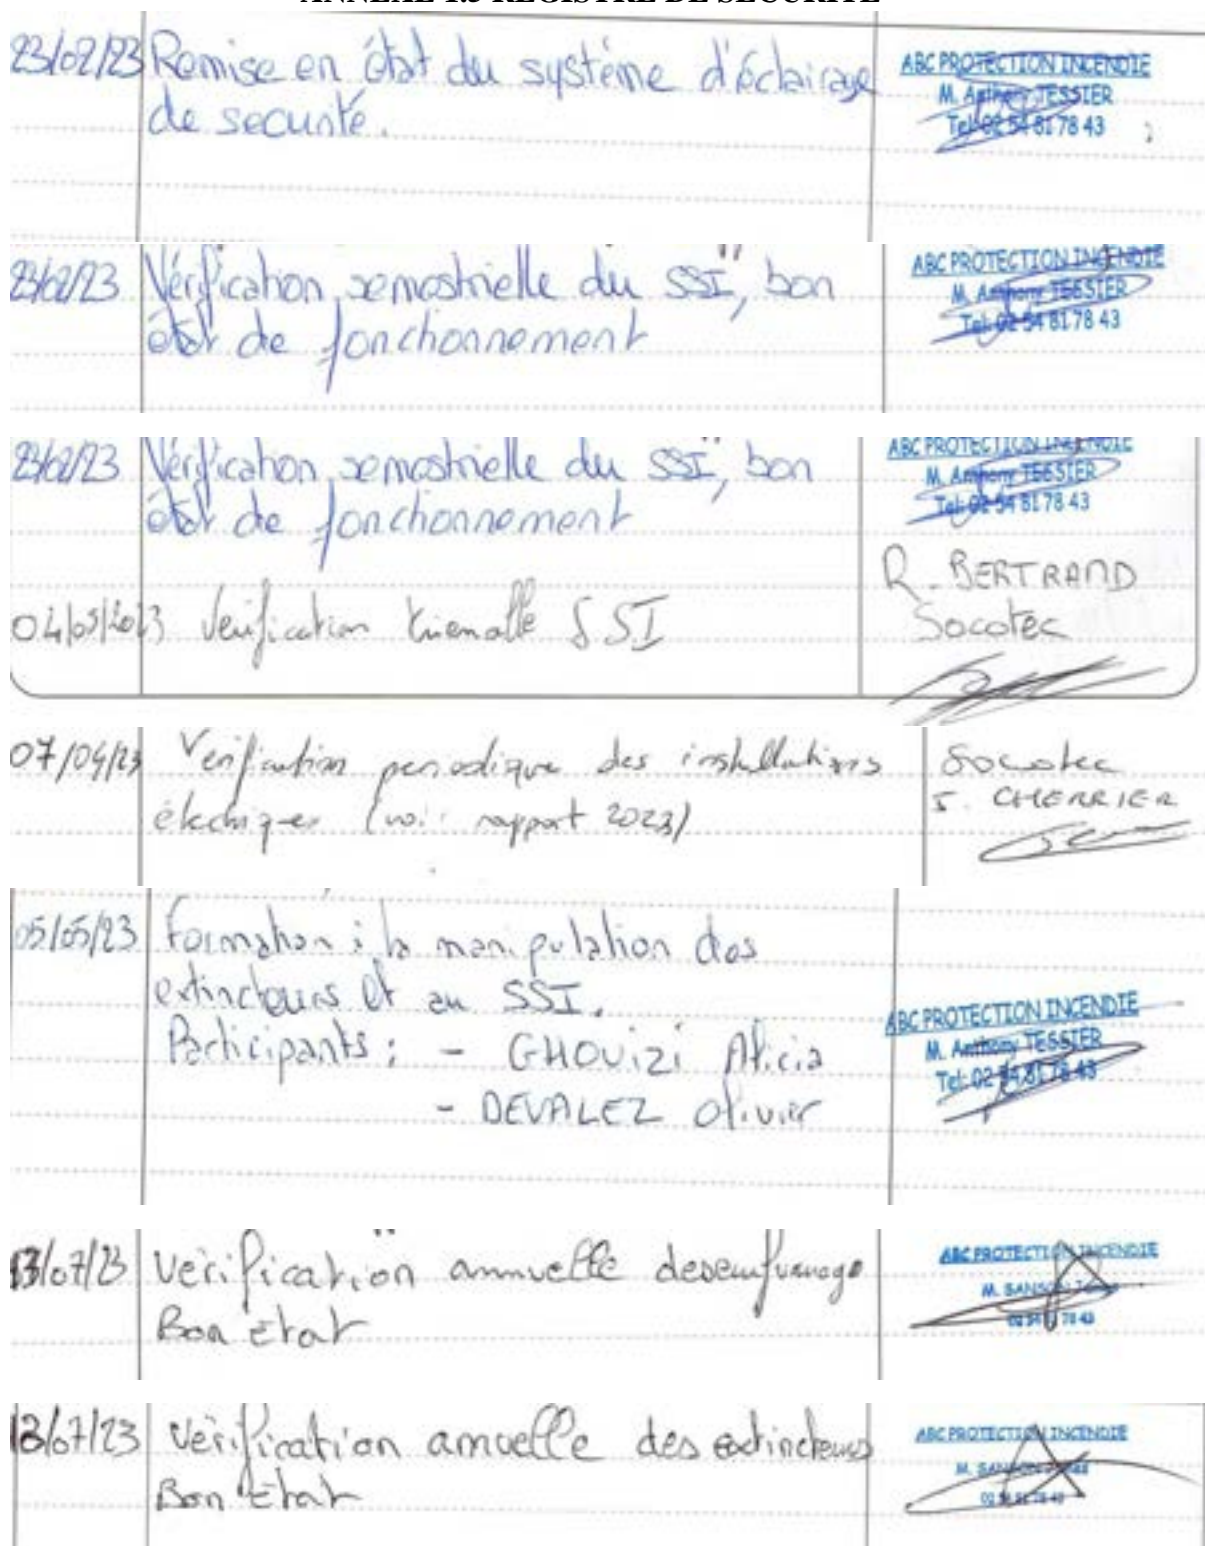 ANNEXE 1.3 REGISTRE DE SÉCURITÉ
23/02/23 Remise en état du système d'éclairage
de securité.
ABC PROTECTION INCENDIE
M. Anthony TESSIER
Tel: 02 54 81 78 43
23/02/23 Vérification semestrielle du SSI, bon
état de fonctionnement
ABC PROTECTION INCENDIE
M. Anthony TESSIER
Tel: 02 54 81 78 43
23/02/23 Vérification semestrielle du SSI, bon
état de fonctionnement
ABC PROTECTION INCENDIE
M. Anthony TESSIER
Tel: 02 54 81 78 43
04/05/2023 Verification trienalle SSI
R. BERTRAND
Socotec
07/04/23 Verification periodique des installations
électriques (voir rapport 2023)
Socotec
CHERRIER
05/05/23 Formation à la manipulation des
extincteurs et au SSI.
Participants : - GHOUIZI Alicia
- DEVALEZ Olivier
ABC PROTECTION INCENDIE
M. Anthony TESSIER
Tel: 02 54 81 78 43
13/07/23 Vérification annuelle desenfumage
Bon état
ABC PROTECTION INCENDIE
M. SANSON
02 54 81 78 43
13/07/23 Vérification annuelle des extincteurs
Bon état
ABC PROTECTION INCENDIE
M. SANSON
02 54 81 78 43